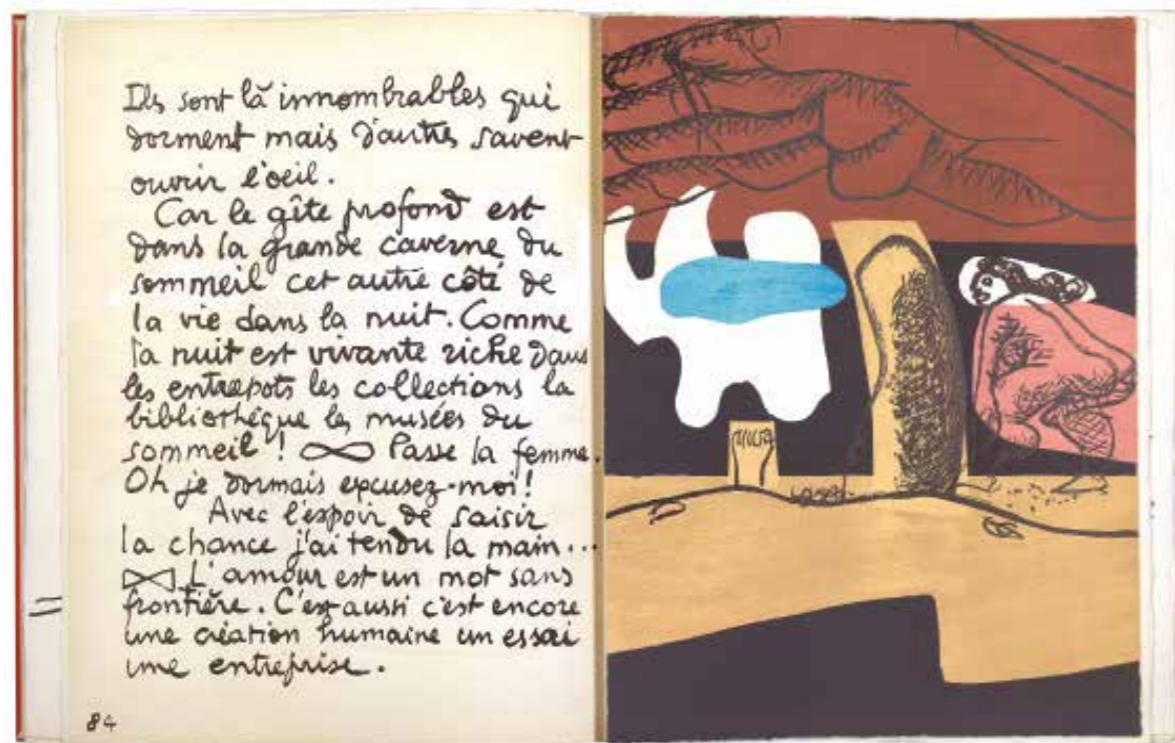 Ils sont là innombrables qui
dorment mais d'autres savent
ouvrir l'oeil.
Car le gîte profond est
dans la grande caverne du
sommeil cet autre côté de
la vie dans la nuit. Comme
la nuit est vivante riche dans
les entrepots les collections la
bibliothéque les musées du
sommeil ! Passe la femme.
Oh je dormais excusez-moi!
Avec l'espoir de saisir
la chance j'ai tendu la main...
L'amour est un mot sans
frontière. C'est aussi c'est encore
une création humaine un essai
une entreprise.
84